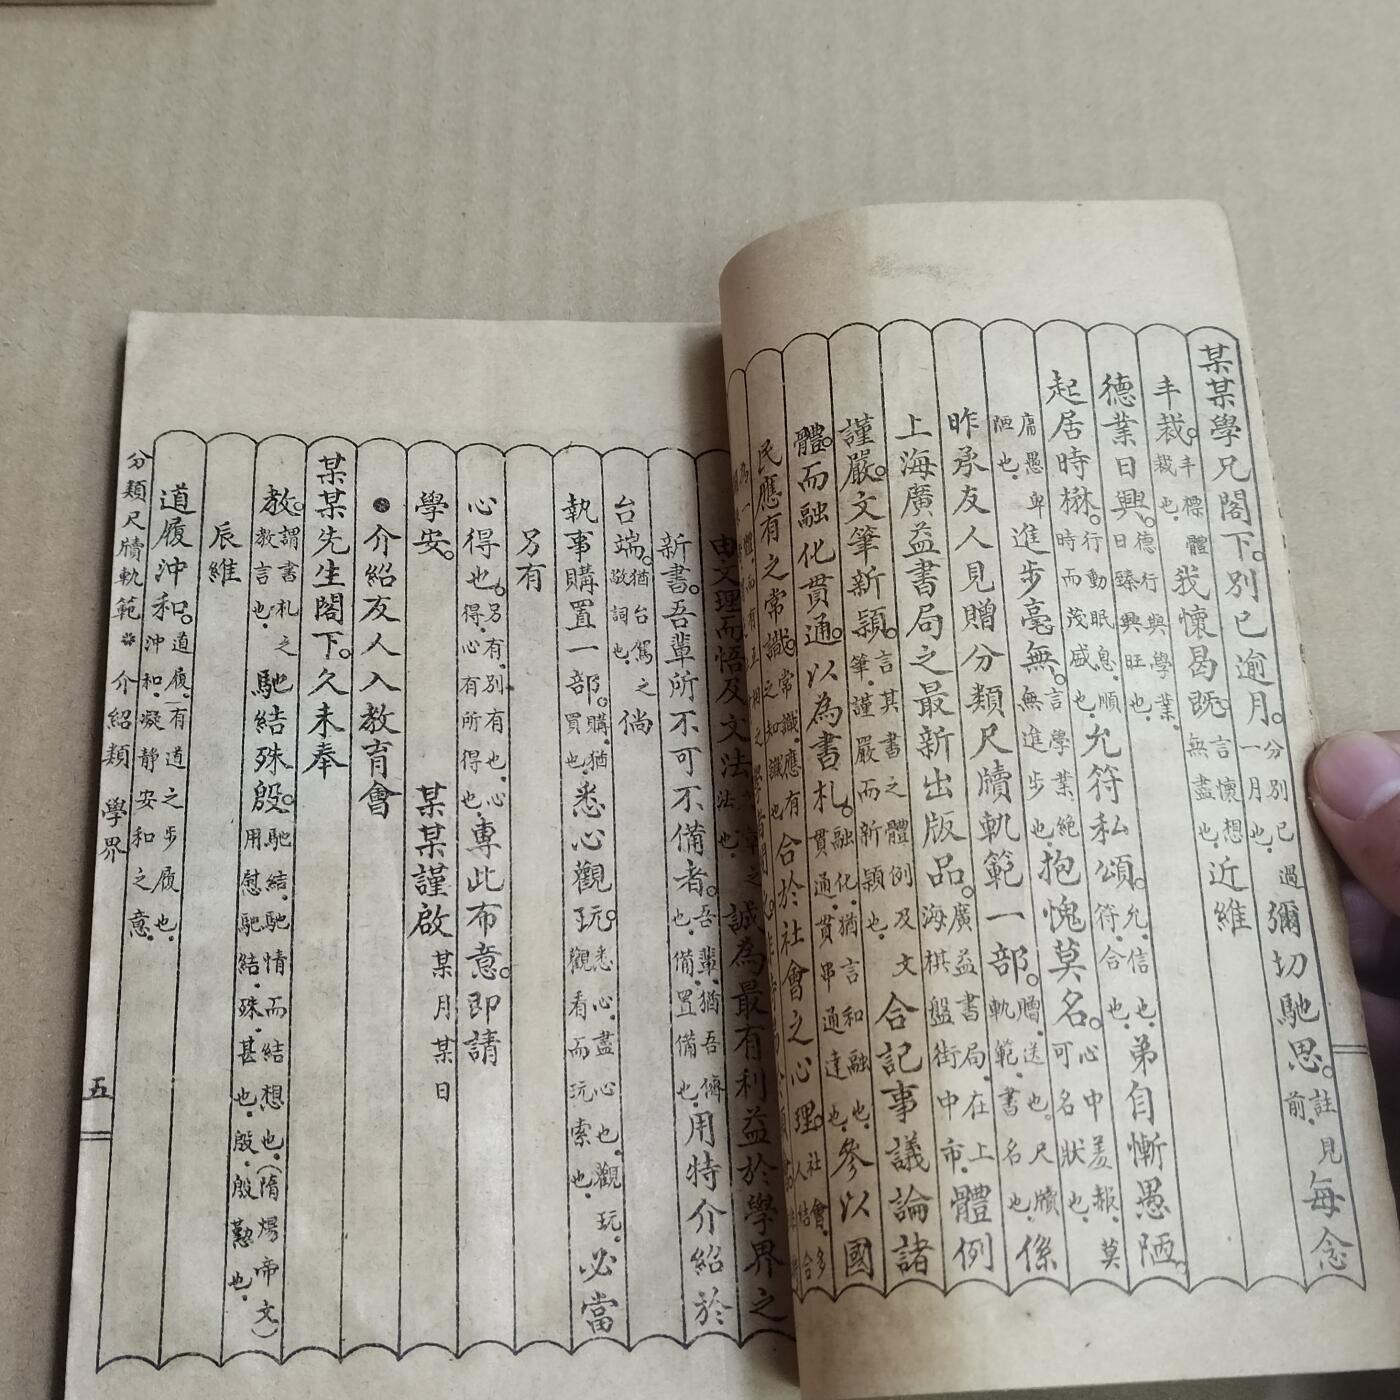 某某學兄閣下。別已逾月。分別已過一月也。彌切馳思。註見前。每念
丰裁。丰標體裁也。我懷曷既。言懷想無盡也。近維
德業日興。德行與學業。日臻興旺也。
起居時楙。行動眠息。順時而茂盛也。允符私頌。允信也。符合也。弟自慚愚陋。
庸愚卑陋也。進步毫無。言學業絕無進步也。抱愧莫名。心中羞赧。莫可名狀也。
昨承友人見贈分類尺牘軌範一部。贈送也。尺牘軌範。書名也。係
上海廣益書局之最新出版品。廣益書局。在上海棋盤街中市。體例
謹嚴。文筆新穎。言其書之體例及文筆。謹嚴而新穎也。合記事議論諸
體。而融化貫通。以為書札。融化。猶言和融也。貫通。貫串通達也。參以國
民應有之常識。常識。應有之知識也。合於社會之心理。社會。多人結合
由文理而悟及文法。誠為最有利益於學界之
新書。吾輩所不可不備者。吾輩。猶吾儕也。備。置備也。用特介紹於
台端。猶台駕之敬詞也。倘
執事購置一部。購。猶買也。悉心觀玩。悉心。盡心也。觀玩。觀看而玩索也。必當
另有
心得也。另有。別有也。心得。心有所得也。專此布意。即請
學安。某某謹啟 某月某日
●介紹友人入教育會
某某先生閣下。久未奉
教。謂書札之教言也。馳結殊殷。馳結。馳情而結想也。(隋煬帝文)用慰馳結。殊。甚也。殷。殷懃也。
辰維
道履沖和。道履。有道之步履也。沖和。凝靜安和之意。
分類尺牘軌範 ＊ 介紹類 學界 五